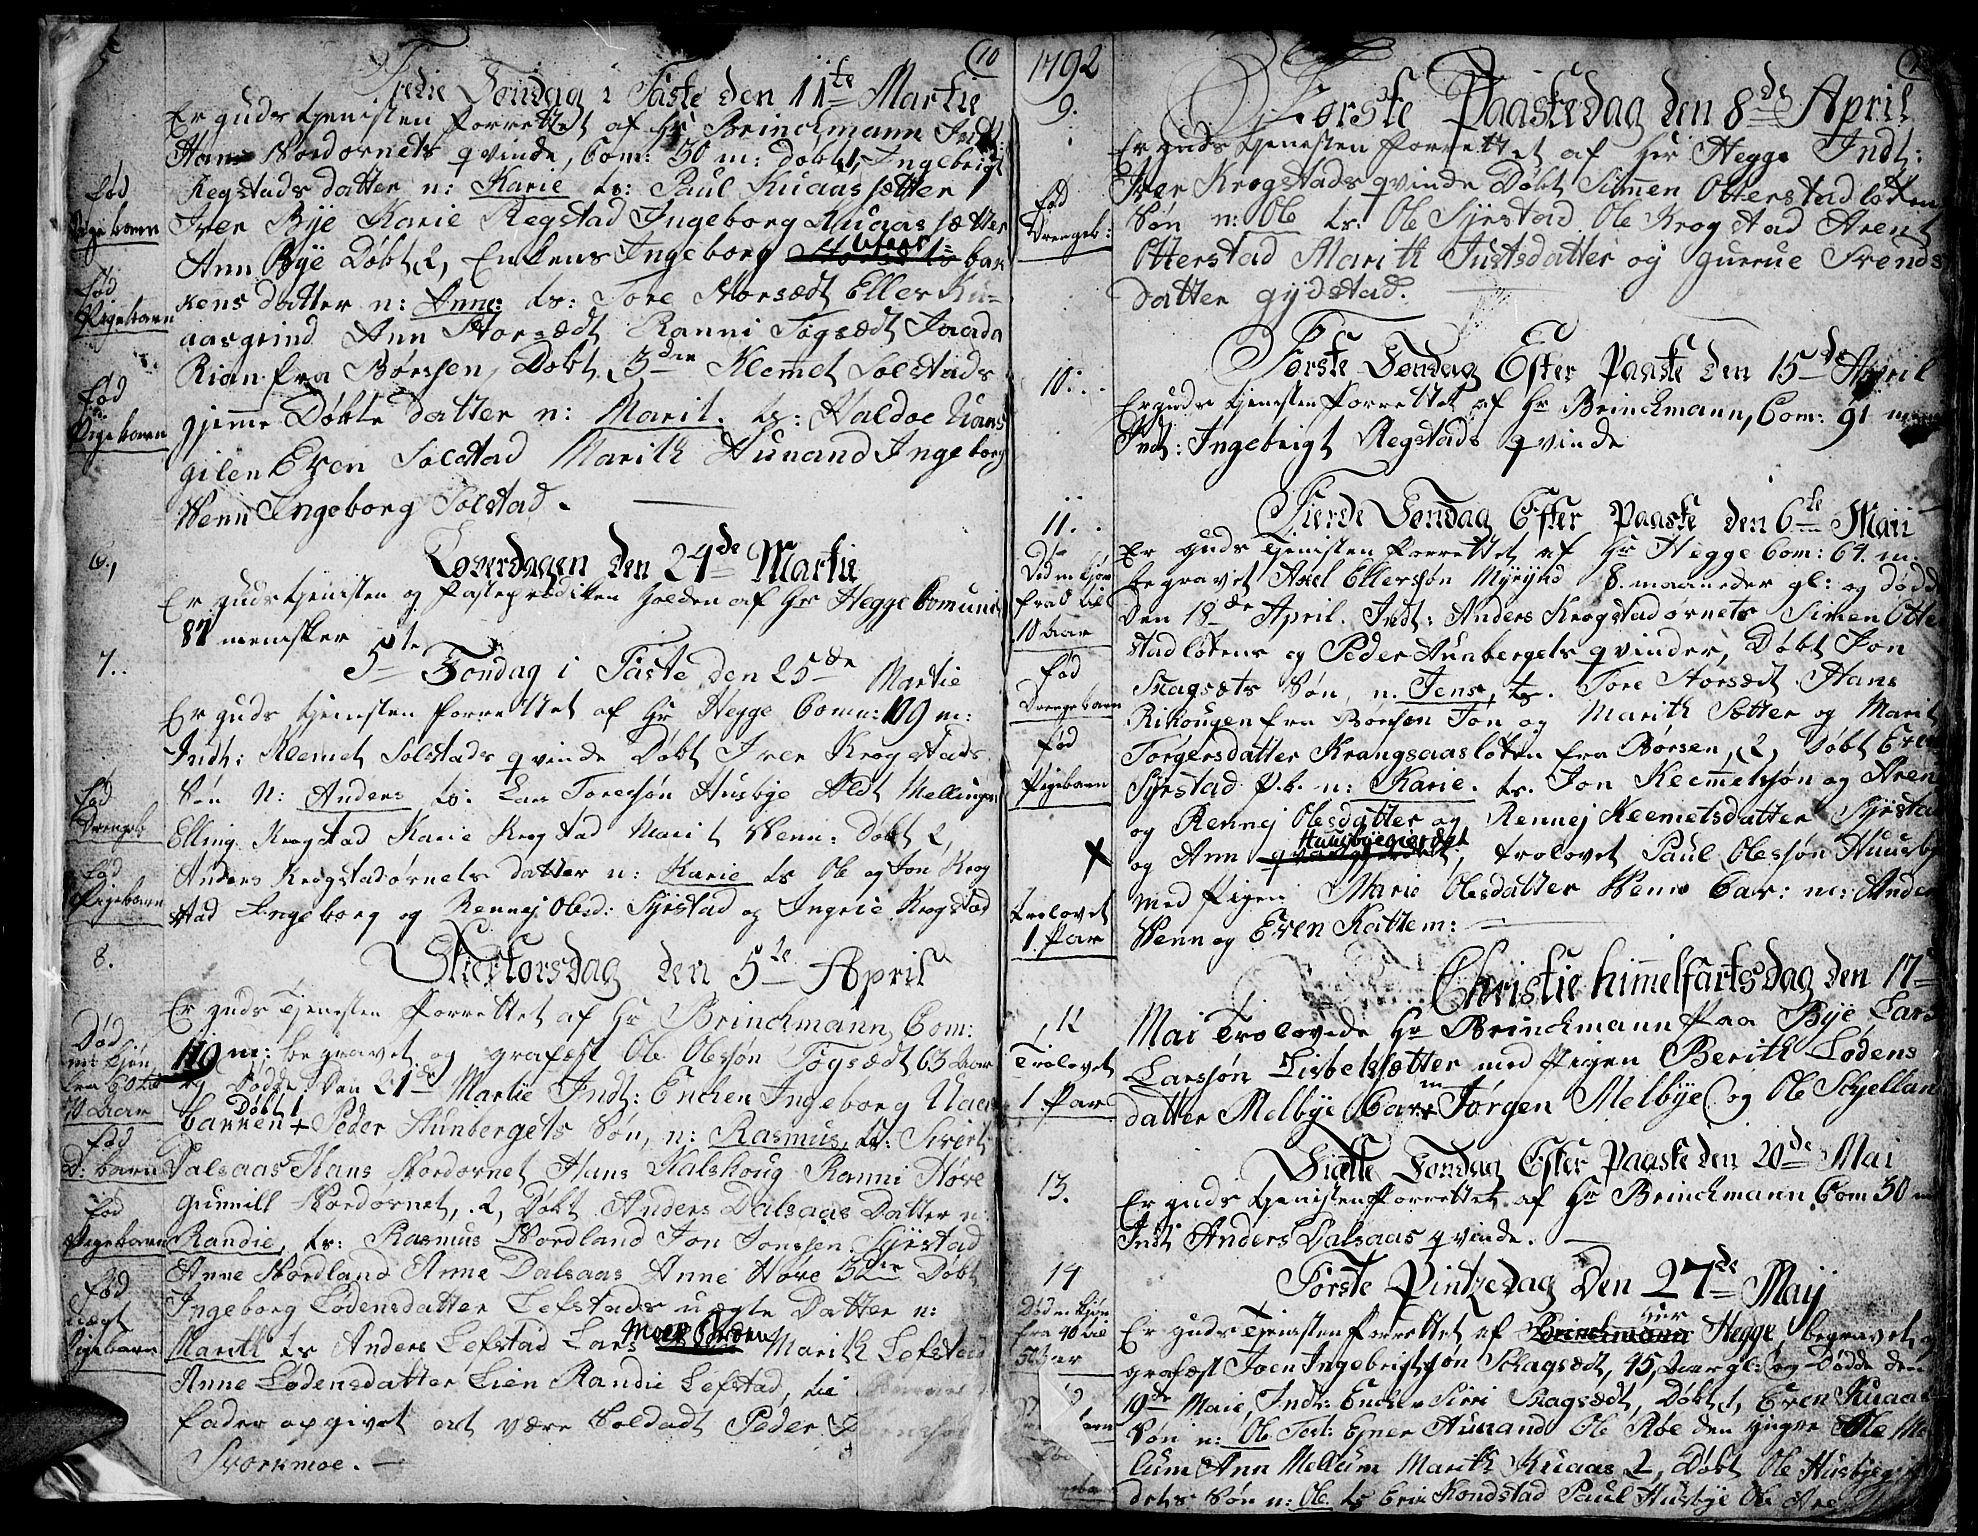 10
3die Søndag i Faste den 11te Martii
Er gudstjenisten forrettet af Hr Brinchmann Indt:
Hans Nordørnets qvinde, Com: 30 m: døbt 1, Ingebrigt
Regstads datter n: Karie ts: Paul Kuaassætter
Iver Bye Karie Regstad Ingeborg Kuaassætter
Ann Bye Døbt 2, Enkens Ingeborg Uaar bak
kens datter n: Anne: ts: Tore Storsædt Eller Ku-
aasgrind Ann Storsædt Ranni Togsædt
Rian fra Børssen, Døbt 3die Klemmet Solstads
hjemme Døbte datter n: Marit. ts: Haldoe
gilen Even Solstad Marith Hunand Ingeborg
Wenn Ingeborg Solstad.
Fød
Pigebarn
Fød
Pigebarn
Fød
Pigebarn
6.
Løverdagen den 24de Martii
Er gudstjenisten og Fasteprediken holden af Hr Hegge Comuni
87 mennisker
7.
5te Søndag i Faste den 25de Martie
Er guds tjenisten forrettet af Hr Hegge Comu: 109 m:
Indt: Klemet Solstads qvinde Døbt Iver Krogstads
Søn N: Anders ts: Lars Toresøn Husbye Aldt Mellingen
Elling Krogstad Karie Krogstad Marit Wenn: Døbt 2,
Anders Krogstadørnets datter n: Karie ts Ole og Jon Krog
stad Ingeborg og Rennej Olesd: Syrstad og Ingrie Krogstad
Fød
Drengeb
Fød
Pigebarn
8.
Skiertorsdag den 5te April
Er guds Tjenesten forrettet af Hr Brinchmann, Com:
119 m: begravet og grafæst Ole Olessøn Togsædt 63 aar
og Døde Den 21de Martie Indt: Enchen Ingeborg Uaar
Døbt 1
bakken + Peder Hunbergets Søn, n: Rasmus, ts: Sivert
Dalsaas Hans Nordørnet Hans Kalskoug Ranni Høve
gunnill Nordørnet, 2, Døbt Anders Dalsaas Datter n:
Randie, ts: Rasmus Nordland Jon Jonssen Syrstad
Anne Nordland Anne Dalsaas Anne Høve 3die Døbt
Ingeborg Lodensdatter Lefstads uægte Datter n:
Marith ts Anders Lefstad Lars Moen Marith Lefstad
Anne Lodensdatter Lien Randie Lefstad, til
fader opgivet at være Soldadt Peder
Svorkmoe.
Død
m: Kjøn
fra 60 til
70 aar
Fød
D: barn
Fød
Pigebarn
Fød
uægt
Pigebarn
1792
9.
Første Paaskedag den 8de April
Er guds tjenesten forrettet af Her Hegge Indt:
Iver Krogstads qvinde Døbt Simen Otterstadløkens
Søn n: Ole ts: Ole Syrstad Ole Krogstad Arent
Otterstad Marith Justsdatter og gurrue Svends
datter gydstad.
Fød
Drengeb:
10.
Første Søndag Efter Paaske den 15de April
Er guds tjenesten forrettet af Hr Brinckmann, Com: 91 menn
Indt: Ingebrigt Regstads qvinde
11.
Fierde Søndag Efter Paaske den 6te Maii
Er guds Tjenisten forrettet af Hr Hegge Com: 64. m.
begravet Axel Ellersøn Myrynd 8. maaneder gl: og døde
Den 18de April. Indt: Anders Krogstadørnets Simen Otter
stadløkens og Peder Hunbergets qvinder, Døbt Jon
Skagsæts Søn, n. Jens, ts. Tore Storsædt Hans
Rikougen fra Børsen Jon og Marith Sætter og Marit
Torgersdatter Krangsaasløken fra Børsen, 2, Døbt Even
Syrstad P.b. n: Karie. ts. Jon Klemmetsøn og Arent
og Rennej Olesdatter og Rennej Klemetsdatter Syrstad
og Ann Huusbyegierdet, trolovet Paul Olessøn Huusbye
med Pigen Marie Olesdatter Wenn Cav: m: Anders
Wenn og Even Kattem:
Død m: kjøn
fra 0 til
10 aar
Fød
Drengebarn
Fød
Pigebarn
X
Trolovet
1. Par
Christie himmelfarts dag den 17de
Mai Trolovede Hr Brinckmann paa Bye Lars
Larssøn Lisbetsætter med Pigen Berith Lodens
datter Melbye Cavm Jørgen Melbye og Ole Schjelland
12
Trolovet
1. Par
13.
Siette Søndag Efter Paaske den 20de Mai
Er guds tjenisten forrettet af Hr Brinckmann Com 30 m
Indt Anders Dalsaas qvinde.
14
Første Pintzedag Den 27de Maij
Er guds Tjenisten forrettet af Hr Hegge begravet og
grafæst Joen Ingebrigtsøn Skagsædt, 45, aar gl: og Døde den
19de Maie, Indt: Enchen Siri Skagsædt, Døbt 1, Even Kuaas
Søn n: Ole Test: Einer Hunand Ole Røe den yngre Ole Me
lum Ann Mellum Marith Kuaas 2, Døbt Ole Husbyegier
dets Søn n: Ole ts Erik Kondstad Paul Husbye Ole
Død m: kjøn
fra 40 til
50 aar